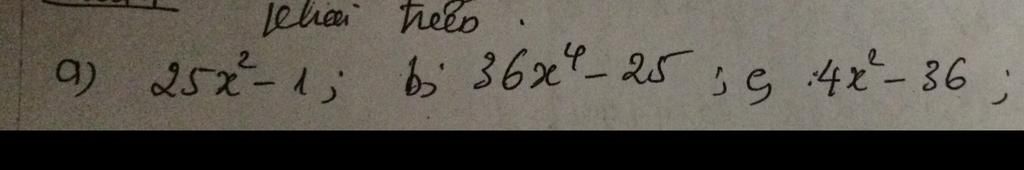 khai treo .
a) 25x² - 1 ; b; 36x⁴ - 25 ; c, 4x² - 36 ;